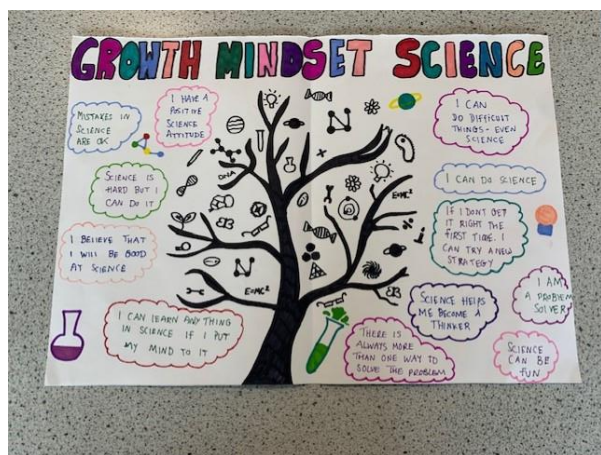 GROWTH MINDSET SCIENCE
MISTAKES IN
SCIENCE
ARE OK
I HAVE A
POSITIVE
SCIENCE
ATTITUDE
SCIENCE IS
HARD BUT I
CAN DO IT
I BELIEVE THAT
I WILL BE GOOD
AT SCIENCE
I CAN LEARN ANYTHING
IN SCIENCE IF I PUT
MY MIND TO IT
DNA
E=MC²
E=MC²
I CAN
DO DIFFICULT
THINGS - EVEN
SCIENCE
I CAN DO SCIENCE
IF I DON'T GET
IT RIGHT THE
FIRST TIME. I
CAN TRY A NEW
STRATEGY
SCIENCE HELPS
ME BECOME A
THINKER
I AM
A PROBLEM
SOLVER
THERE IS
ALWAYS MORE
THAN ONE WAY TO
SOLVE THE PROBLEM
SCIENCE
CAN BE
FUN